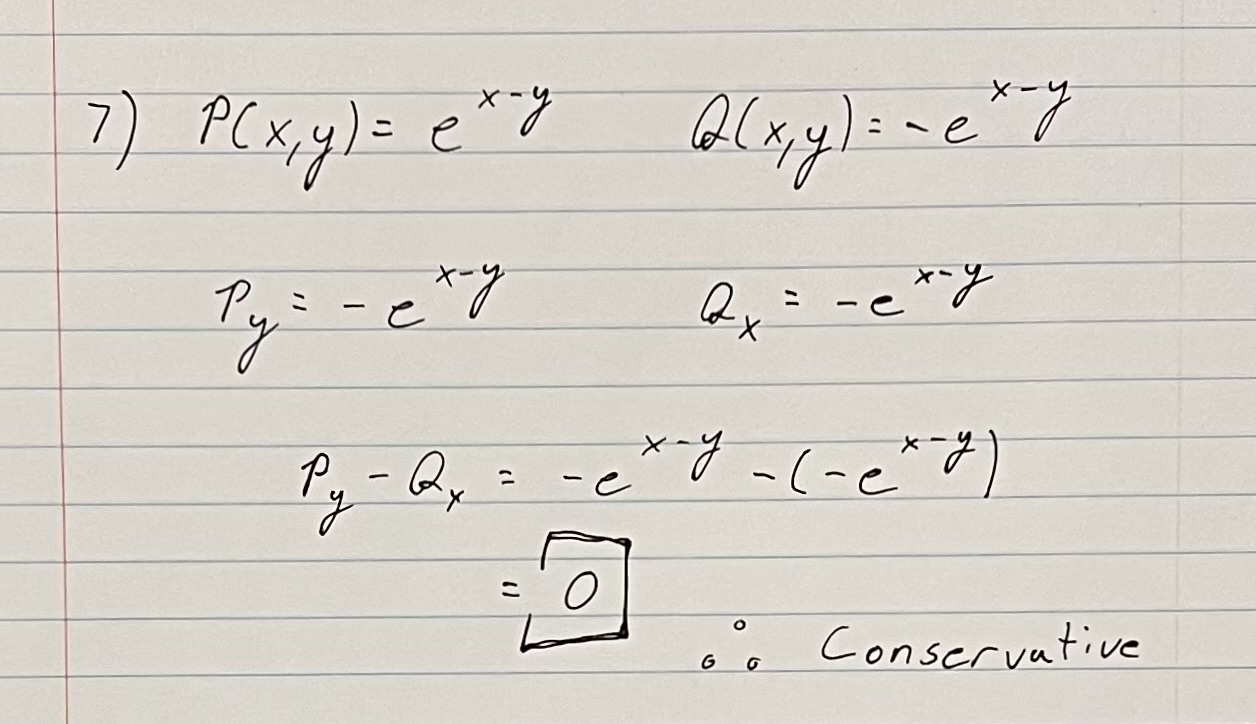 7) P(x,y) = e^{x-y} Q(x,y) = -e^{x-y}
P_y = -e^{x-y} Q_x = -e^{x-y}
P_y - Q_x = -e^{x-y} - (-e^{x-y})
= 0
∴ Conservative